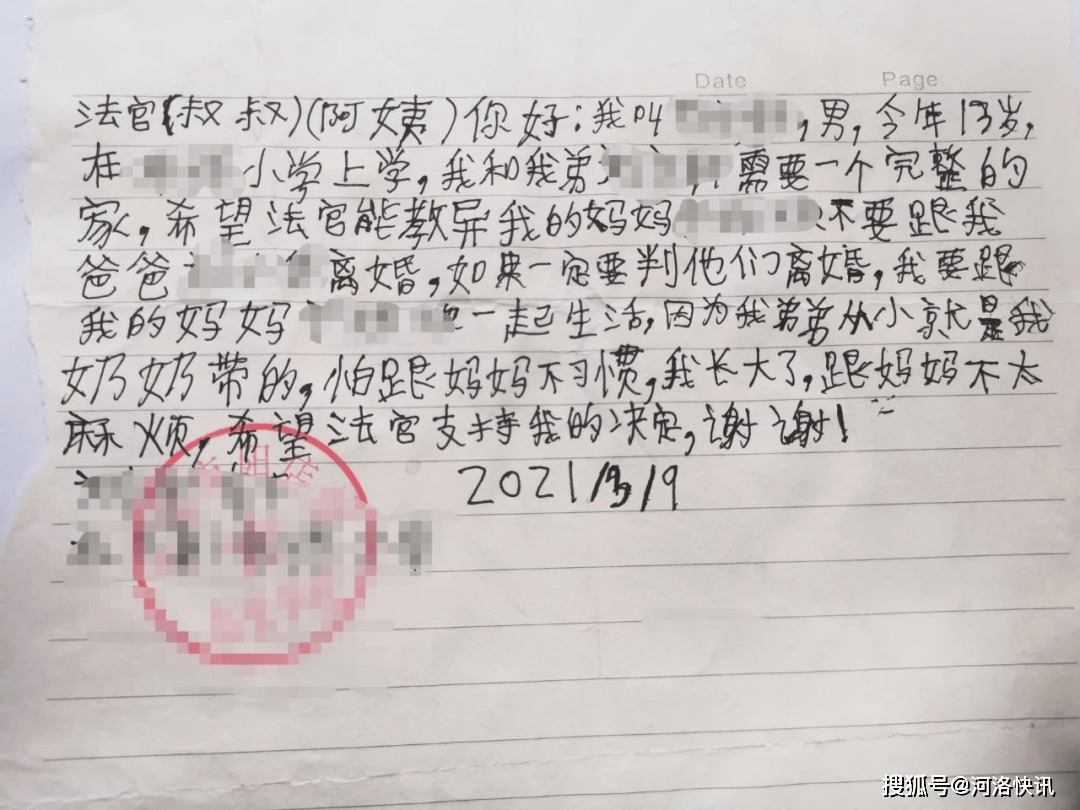 Date Page.
法官(叔叔)(阿姨)你好:我叫,男,今年13岁,
在小学上学,我和我弟需要一个完整的
家,希望法官能教导我的妈妈不要跟我
爸爸离婚,如果一定要判他们离婚,我要跟
我的妈妈一起生活,因为我弟弟从小就是我
奶奶带的,怕跟妈妈不习惯,我长大了,跟妈妈不太
麻烦,希望法官支持我的决定,谢谢!
2021//9
搜狐号@河洛快讯